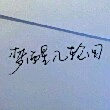 梦醒几轮回